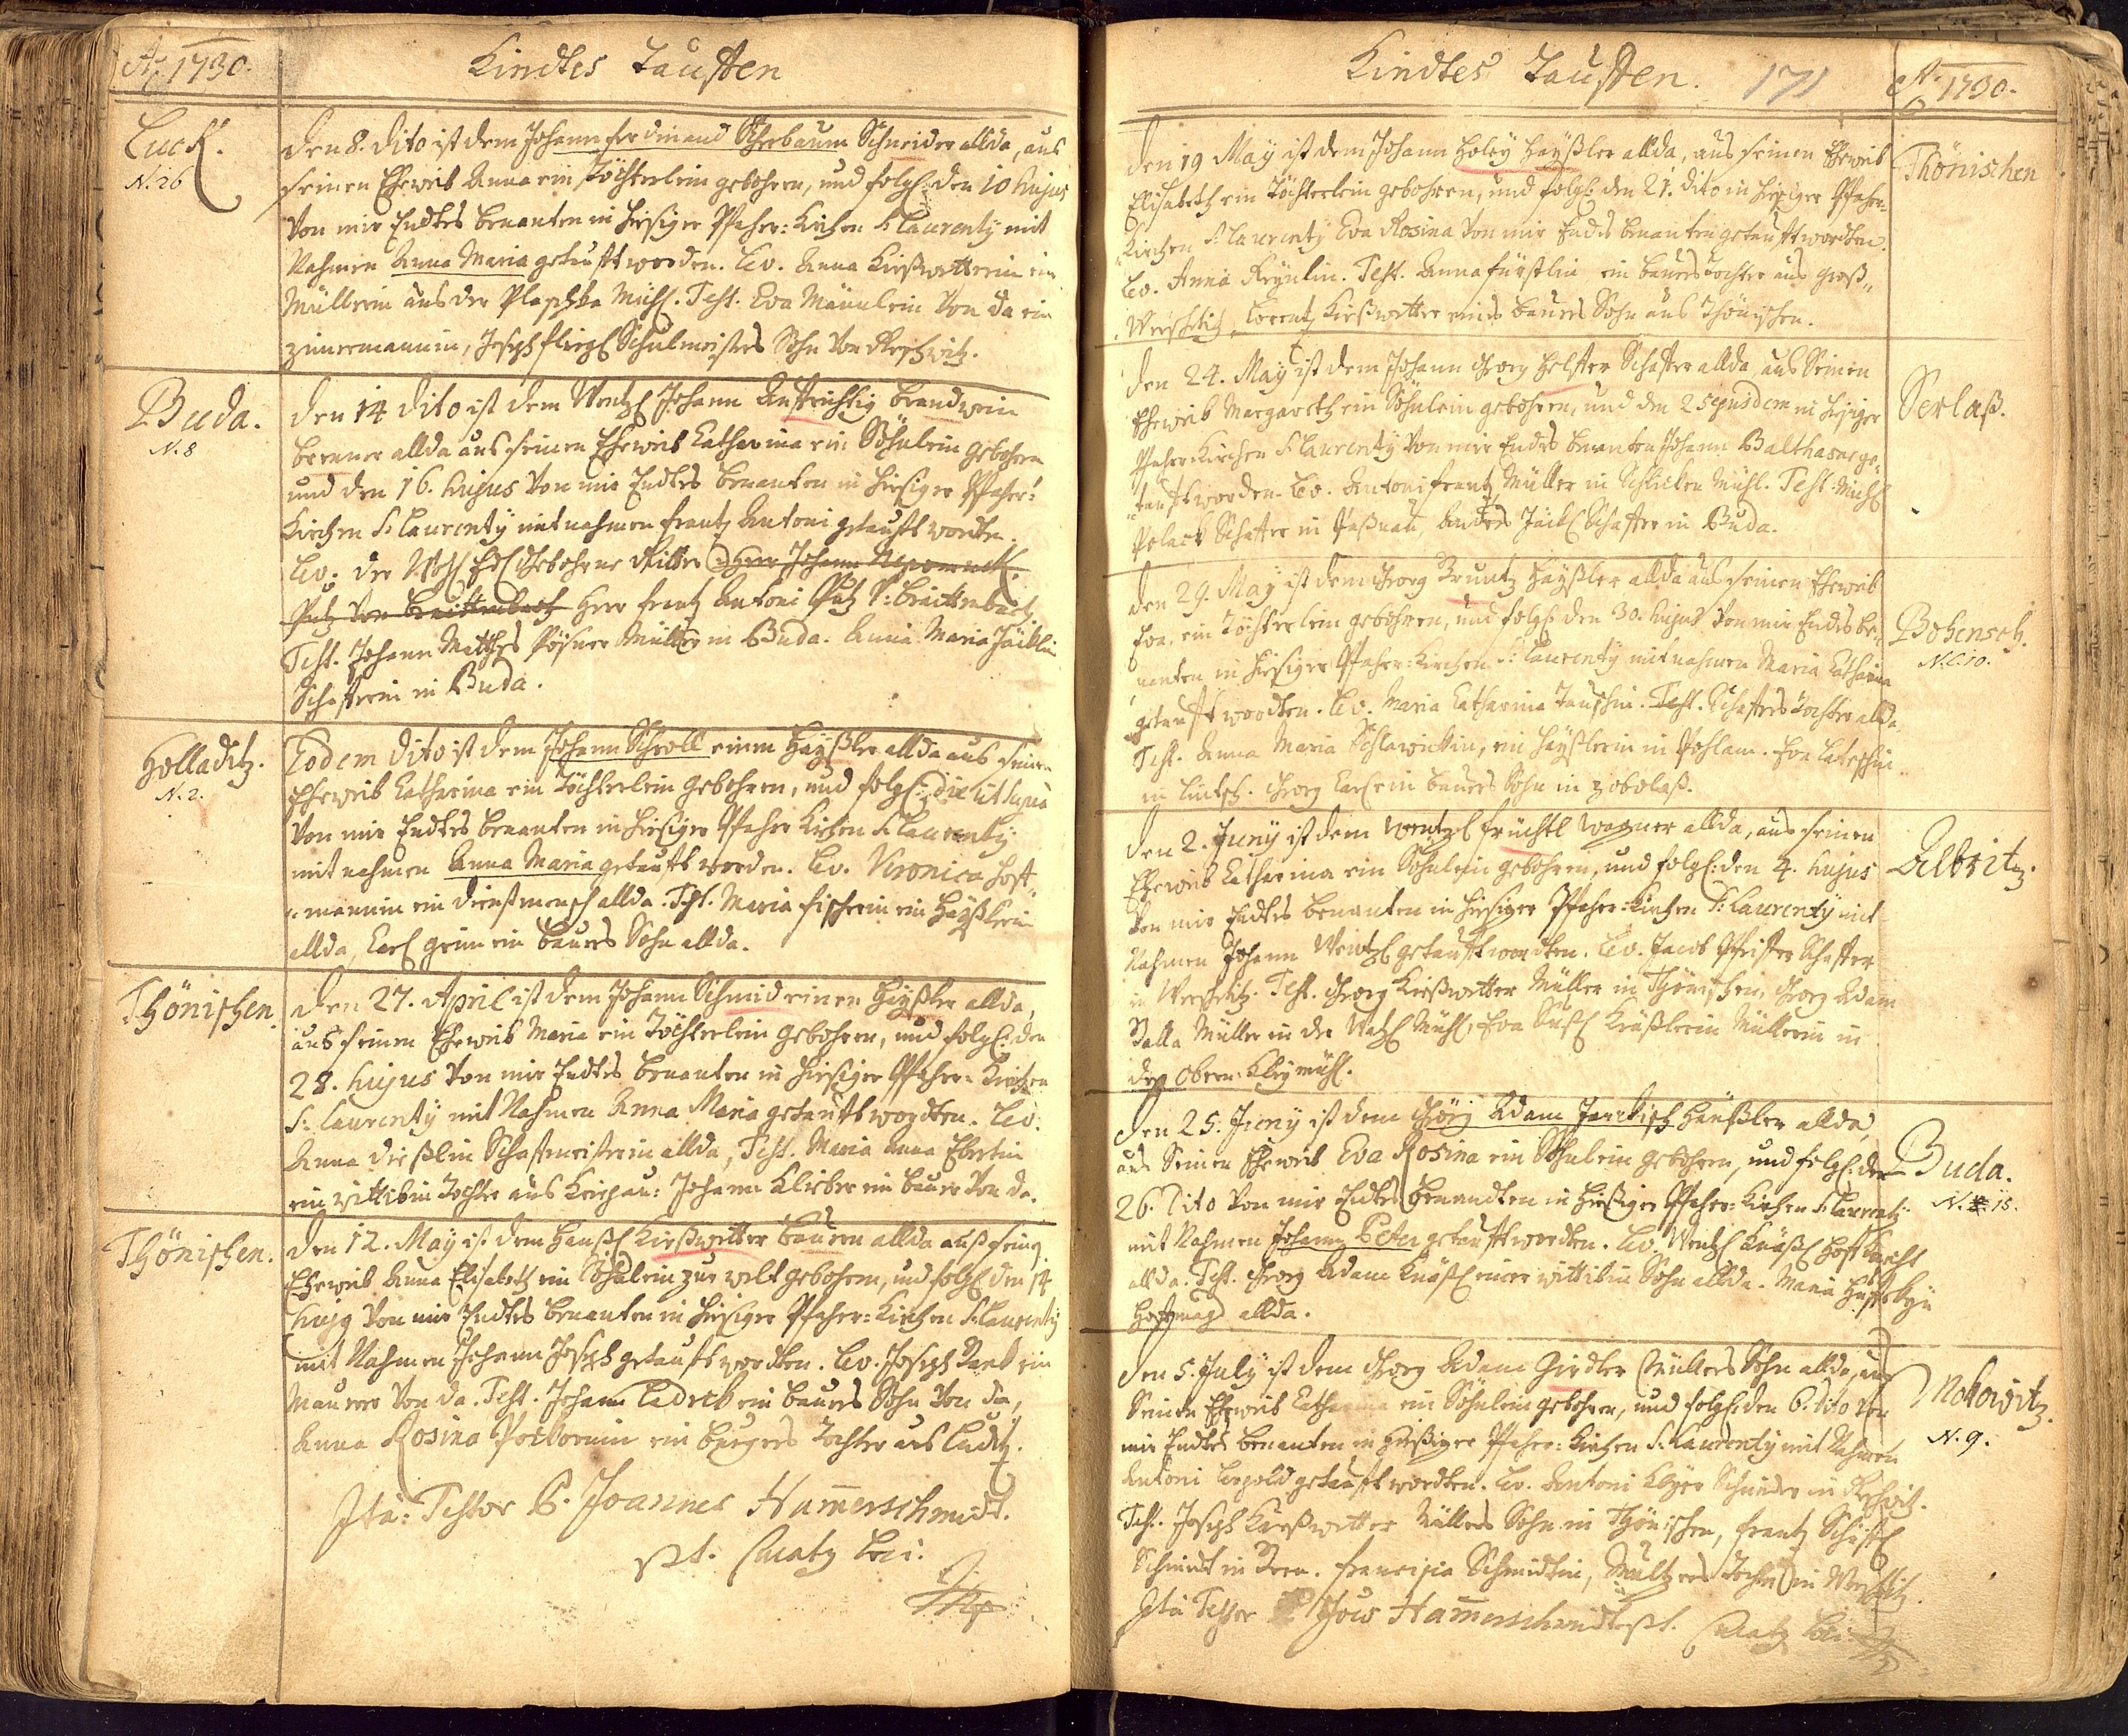 Aõ 1730.
Kindtes Tauffen
Luck.
N. 26
den 8. dito ist dem Johann ferdinand Scherbaum Schneider allda, aus
seinen Eheweib Anna ein Töchterlein gebohren, und folgl: den 10 hujus
Von mir Endtes benanten in hiesiger Pfahr: Kirchen S: Laurenty mit
Nahmen Anna Maria getaufft worden. Lev. Anna Kießwetterin ein
Müllerin aus der Mühl. Test. Eva Männlein Von da ein
zimermannin, Joseph Schulmeisters Sohn Von
Buda.
N. 8
den 14 dito ist dem Wentzl Johann Auffrichtig Brandwein
brenner allda aus seinen Eheweib Catharina ein Söhnlein gebohren
und den 16. hujus Von mir Endtes benanten in hiesiger Pfahr:
Kirchen S: Laurenty mit nahmen frantz Antoni getaufft worden.
Lev: der Wohl Edl Gebohrne Ritter Herr Johann Nepomuck.
Putz Von Breittenbach Herr frantz Antoni Putz V: Breittenbach
Test. Johann Matthes Pösner Müller in Buda. Anna Maria Jäcklin
Schafferin in Buda.
Holladitz.
N. 2.
Eodem dito ist dem Johann Schroll einem Häyßler allda aus seinen
Eheweib Catharina ein Töchterlein gebohren, und folgl: die ut supra
Von mir Endtes benanten in hiesiger Pfahr Kirchen S: Laurenty
mit nahmen Anna Maria getaufft worden. Lev. Veronica Hoff„
„mannin ein dienstmensch allda. Test. Maria fischerin ein Häyßlerin
allda, Carl grim ein Bauers Sohn allda.
Thönischen.
den 27. April ist dem Johann Schmid einen Häyßler allda,
aus seinen Eheweib Maria ein Töchterlein gebohren, und folgl: den
28. hujus Von mir Endtes benanten in hiesiger Pfahr: Kirchen
S: Laurenty mit Nahmen Anna Maria getaufft wordten. Lev.
Anna Schaffmeisterin allda, Test. Maria Anna Ebertin
ein wittibin Tochter aus Johann Klieber ein Bauer Von da.
Thönischen.
den 12. May ist dem Hanßl Kießwetter Bauern allda auß seing
Eheweib Anna Elisabeth ein Söhnlein zur welt gebohren, und folgl: den 14
hujg Von mir Endtes benanten in hiesiger Pfahr: Kirchen S: Laurenty
mit Nahmen Johann Joseph getaufft wordten. Lev. Joseph ein
Maurer Von da. Test. Johann Ladreb ein Bauers Sohn Von da,
Anna Rosina ein burgers Tochter aus Luditz.
Ita: Testor P. Joannes Hamerschmidt.
pt. Curatg loci.
Kindtes Tauffen. 171
Aõ 1730.
den 19 May ist dem Johann Häyßler allda, aus seinen Eheweib
Elisabeth ein Töchterlein gebohren, und folgl: den 21. dito in hiesiger Pfahr:
Kirchen S: Laurenty Eva Rosina Von mir Endts benanten getaufft wordten.
Lev. Anna Test. Anna fürstlin ein bauers Tochter aus groß„
Werscheditz, Lorentz Kießwetter eines bauers Sohn aus Thönischen.
Thönischen
den 24. May ist dem Johann Georg Schaffer allda, aus Seinen
Eheweib Margareth ein Söhnlein gebohren, und den 25 ejusdem in hiesiger
Pfahr Kirchen S: Laurenty Von mir Endes benanten Johann Balthasar ge„
„taufft worden. Lev. Antoni frantz Müller in Schlicken Mühl. Test. Michl
Polack Schaffer in Jäckl Schaffer in Buda.
Serlaß.
den 29. May ist dem Georg Häyßler allda aus seinen Eheweib
Eva, ein Töchterlein gebohren, und folgl: den 30. hujus Von mir Endts be„
nanten in hiesiger Pfahr: Kirchen S: Laurenty mit nahmen Maria Catharina
getaufft wordten. Lev. Maria Catharina Test. Schaffers Tochter allda.
Test. Anna Maria ein Häyßlerin in Pohlam. Eva
in Georg Carl ein bauers Sohn in
Bohentsch.
N. 10.
den 2. Juny ist dem Wentzl früchtl Wagner allda, aus seinen
Eheweib Catharina ein Söhnlein gebohren, und folgl: den 4. hujus
Von mir Endtes benanten in hiesiger Pfahr: Kirchen S: Laurenty mit
Nahmen Johann Wentzl getaufft wordten. Lev. Jacob Pfeiffer Schaffer
in Werscheditz. Test. Georg Kießwetter Müller in Thönischen, Georg Adam
Balla Müller in der Mühl, Eva Müllerin in
der obern Mühl.
Albritz.
den 25. Juny ist dem Görg Adam Häußler allda,
aus Seinen Eheweib Eva Rosina ein Söhnlein gebohren, und folgl: den
26. Dito Von mir Endtes benandten in hießiger Pfahr: Kirchen S: Laurenty
mit Nahmen Johann Peter getaufft wordten. Lev. Wentzl Hoffknecht
allda. Test. Georg Adam einer wittibin Sohn allda. Maria
Hoffmagd allda.
Buda.
N. 15.
den 5. July ist dem Georg Adam Girdler Müllers Sohn allda, aus
Seinen Eheweib Catharina ein Söhnlein gebohren, und folgl: den 6. dito Von
mir Endtes benanten in hießiger Pfahr: Kirchen S: Laurenty mit Nahmen
Antoni Leopold getaufft wordten. Lev. Antoni Schneider in
Test. Joseph Kießwetter Müllers Sohn in Thönischen, frantz
Schmidt in francisca Schmidtin, Tochter in Werscheditz.
Mokowitz.
N. 9.
Ita Testor P Joes Hamerschmidt pt. Curatg loci